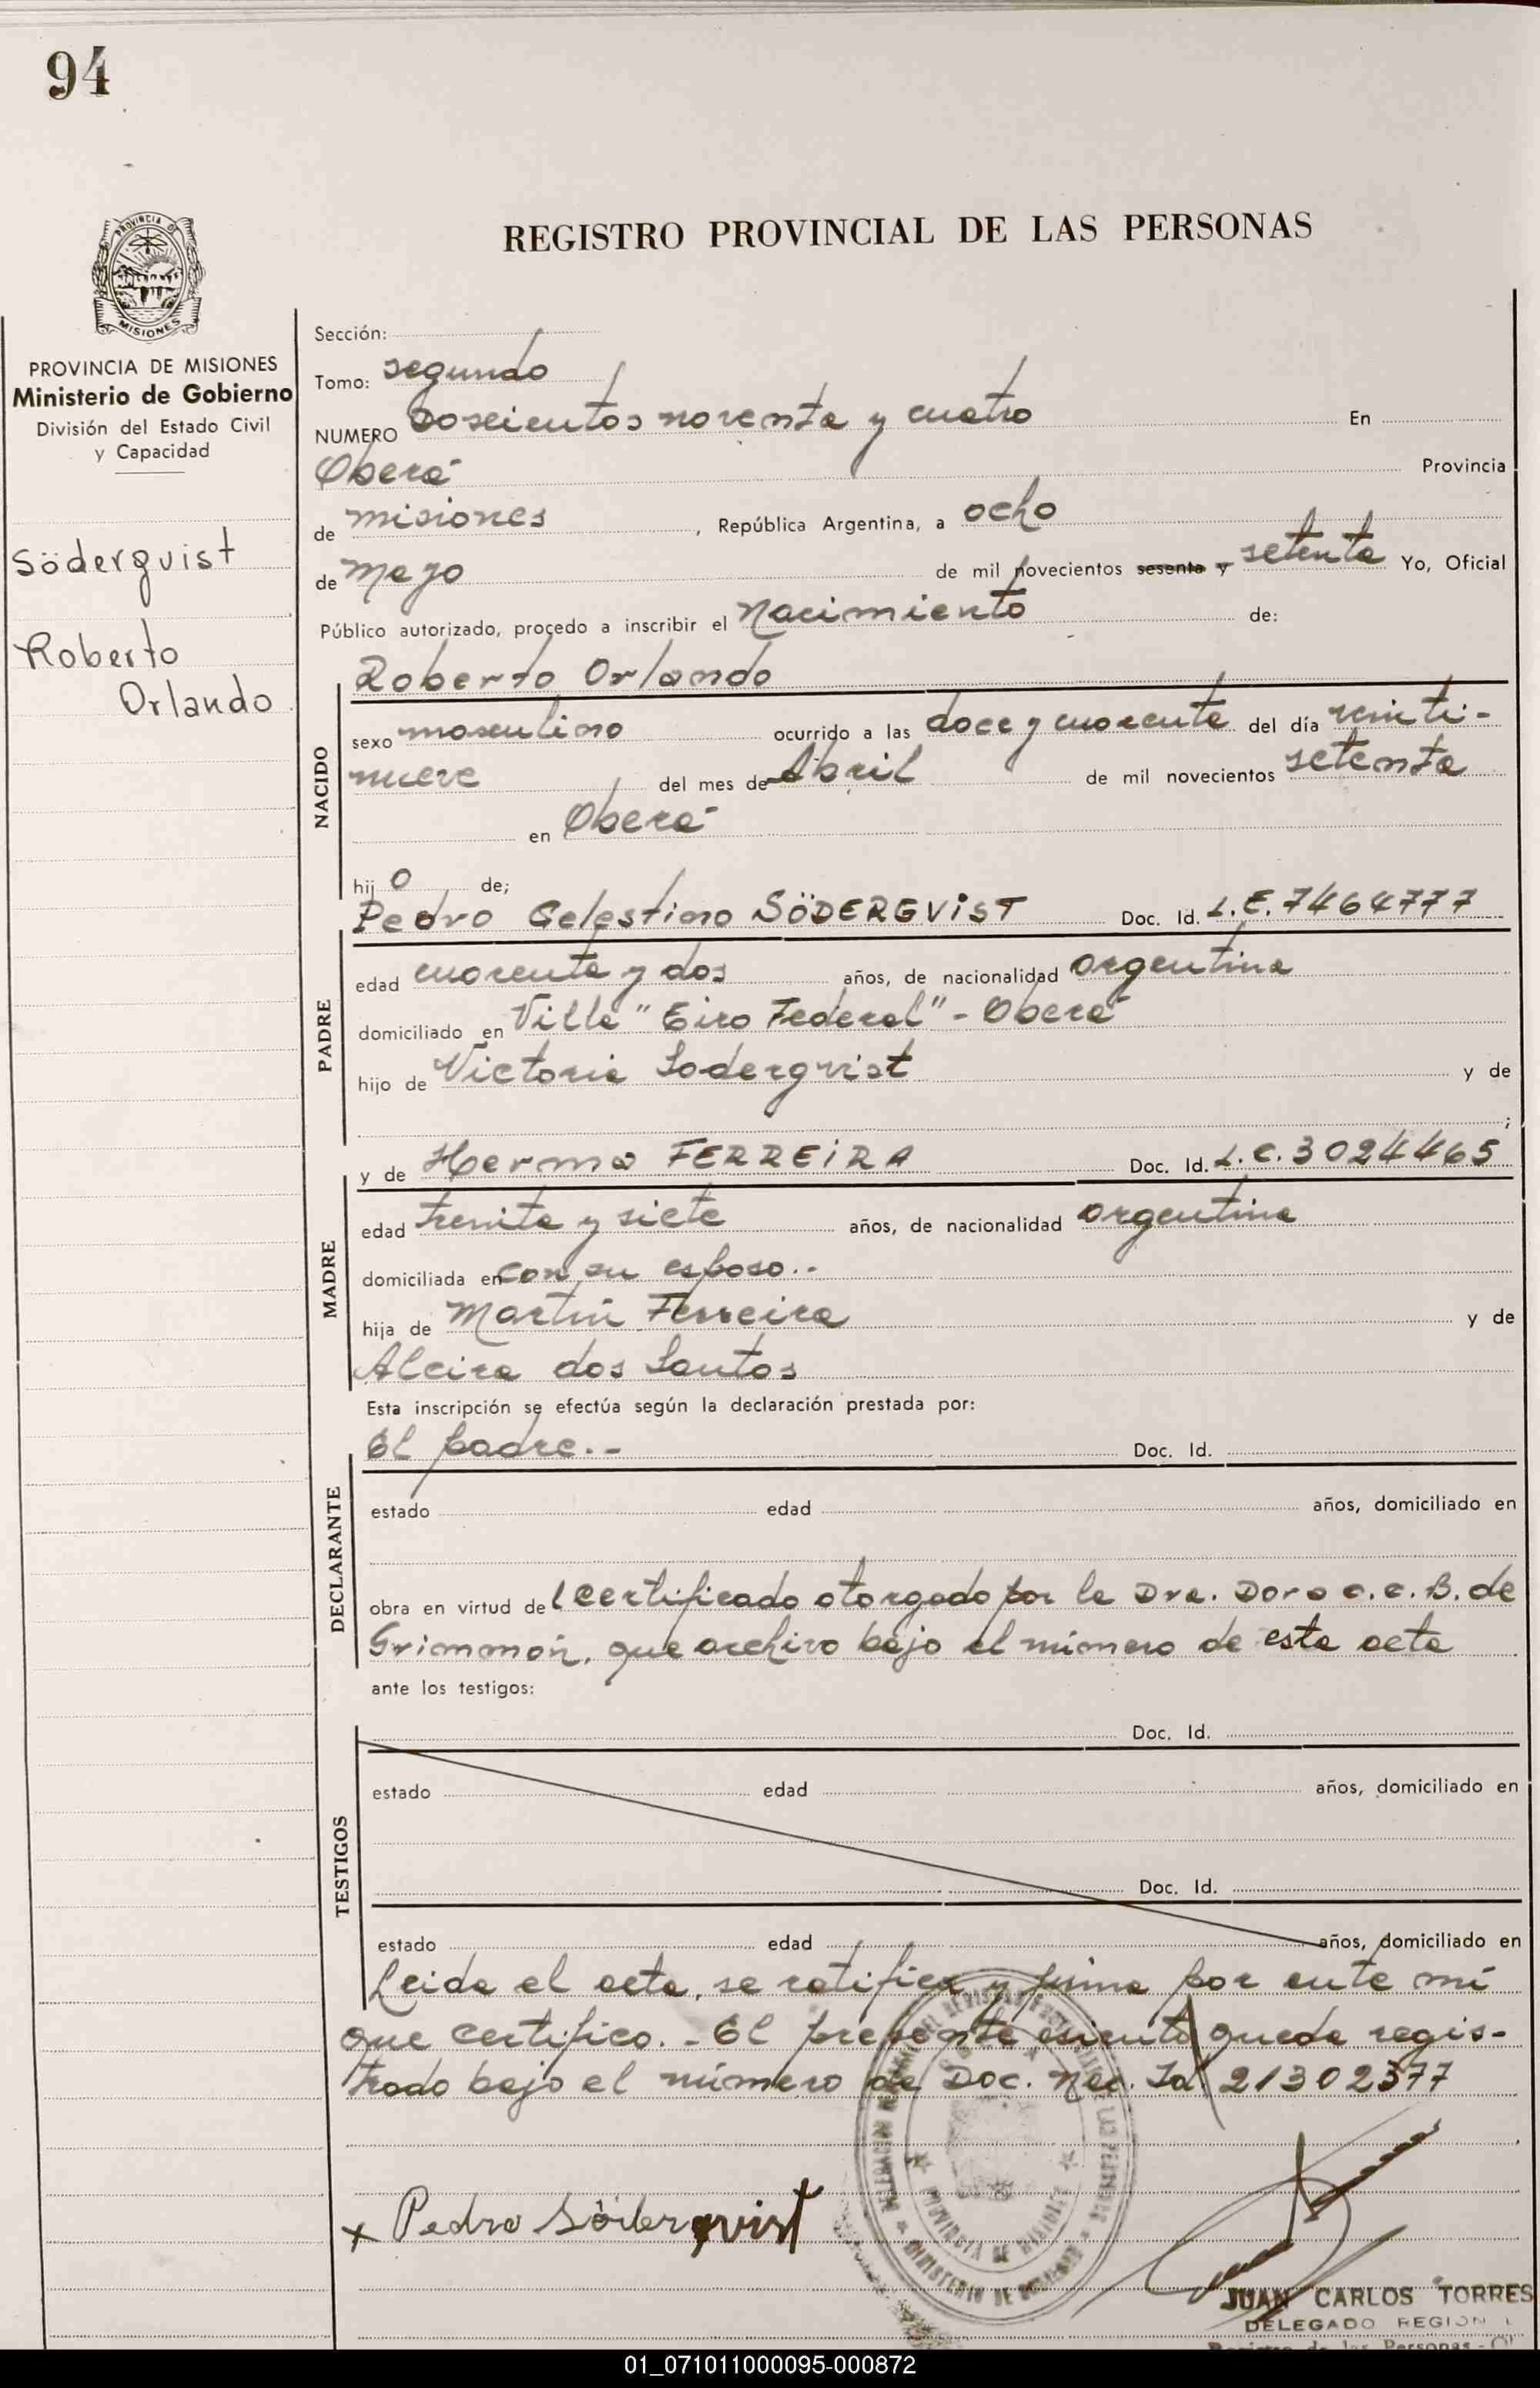 94
PROVINCIA DE
MISIONES
REGISTRO PROVINCIAL DE LAS PERSONAS
PROVINCIA DE MISIONES
Ministerio de Gobierno
División del Estado Civil
y Capacidad
Söderqvist
Roberto
Orlando
Sección:
Tomo: segundo
NUMERO Doscientos noventa y cuatro En
Oberá Provincia
de misiones , República Argentina, a ocho
de mayo de mil novecientos sesenta y setenta Yo, Oficial
Público autorizado, procedo a inscribir el Nacimiento de:
Roberto Orlando
NACIDO
sexo masculino ocurrido a las doce y cuarenta del día veinti-
nueve del mes de Abril de mil novecientos setenta
en Oberá
hijo de;
Pedro Celestino SÖDERQVIST Doc. Id. L.E. 7464777
PADRE
edad cuarenta y dos años, de nacionalidad argentina
domiciliado en Villa "Giro Federal" - Oberá
hijo de Victoria Soderqvist y de
;
y de Herma FERREIRA Doc. Id. L.C. 3024465
MADRE
edad treinta y siete años, de nacionalidad argentina
domiciliada en con su esposo.-
hija de Martín Ferreira y de
Alcira dos Santos
Esta inscripción se efectúa según la declaración prestada por:
El padre.- Doc. Id.
DECLARANTE
estado edad años, domiciliado en
obra en virtud del certificado otorgado por la Dra. Dora C.C.B. de
que archivo bajo el número de esta acta
ante los testigos:
Doc. Id.
TESTIGOS
estado edad años, domiciliado en
Doc. Id.
estado edad años, domiciliado en
Leida el acta, se ratifica y firma por ante mí
que certifico.- El presente asiento queda regis-
trado bajo el número de Doc. Nac. Id. 21302377
PROVINCIA DE MISIONES
MINISTERIO DE GOBIERNO
x Pedro Söderqvist
JUAN CARLOS TORRES
DELEGADO REGION
Registro de las Personas -
01_071011000095-000872